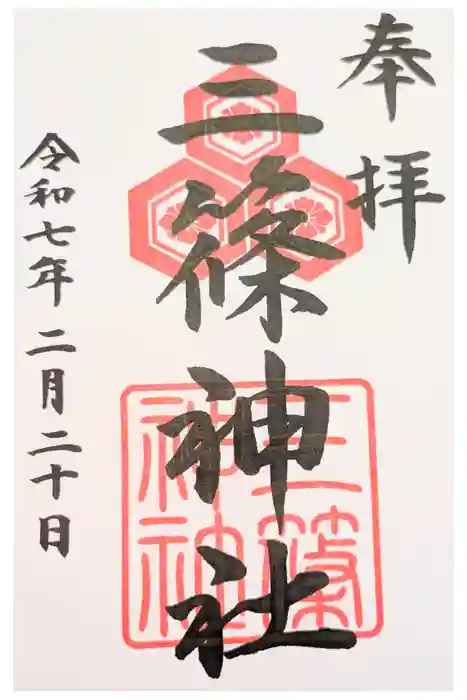 奉拝
三篠神社
令和七年二月二十日
三篠
神社